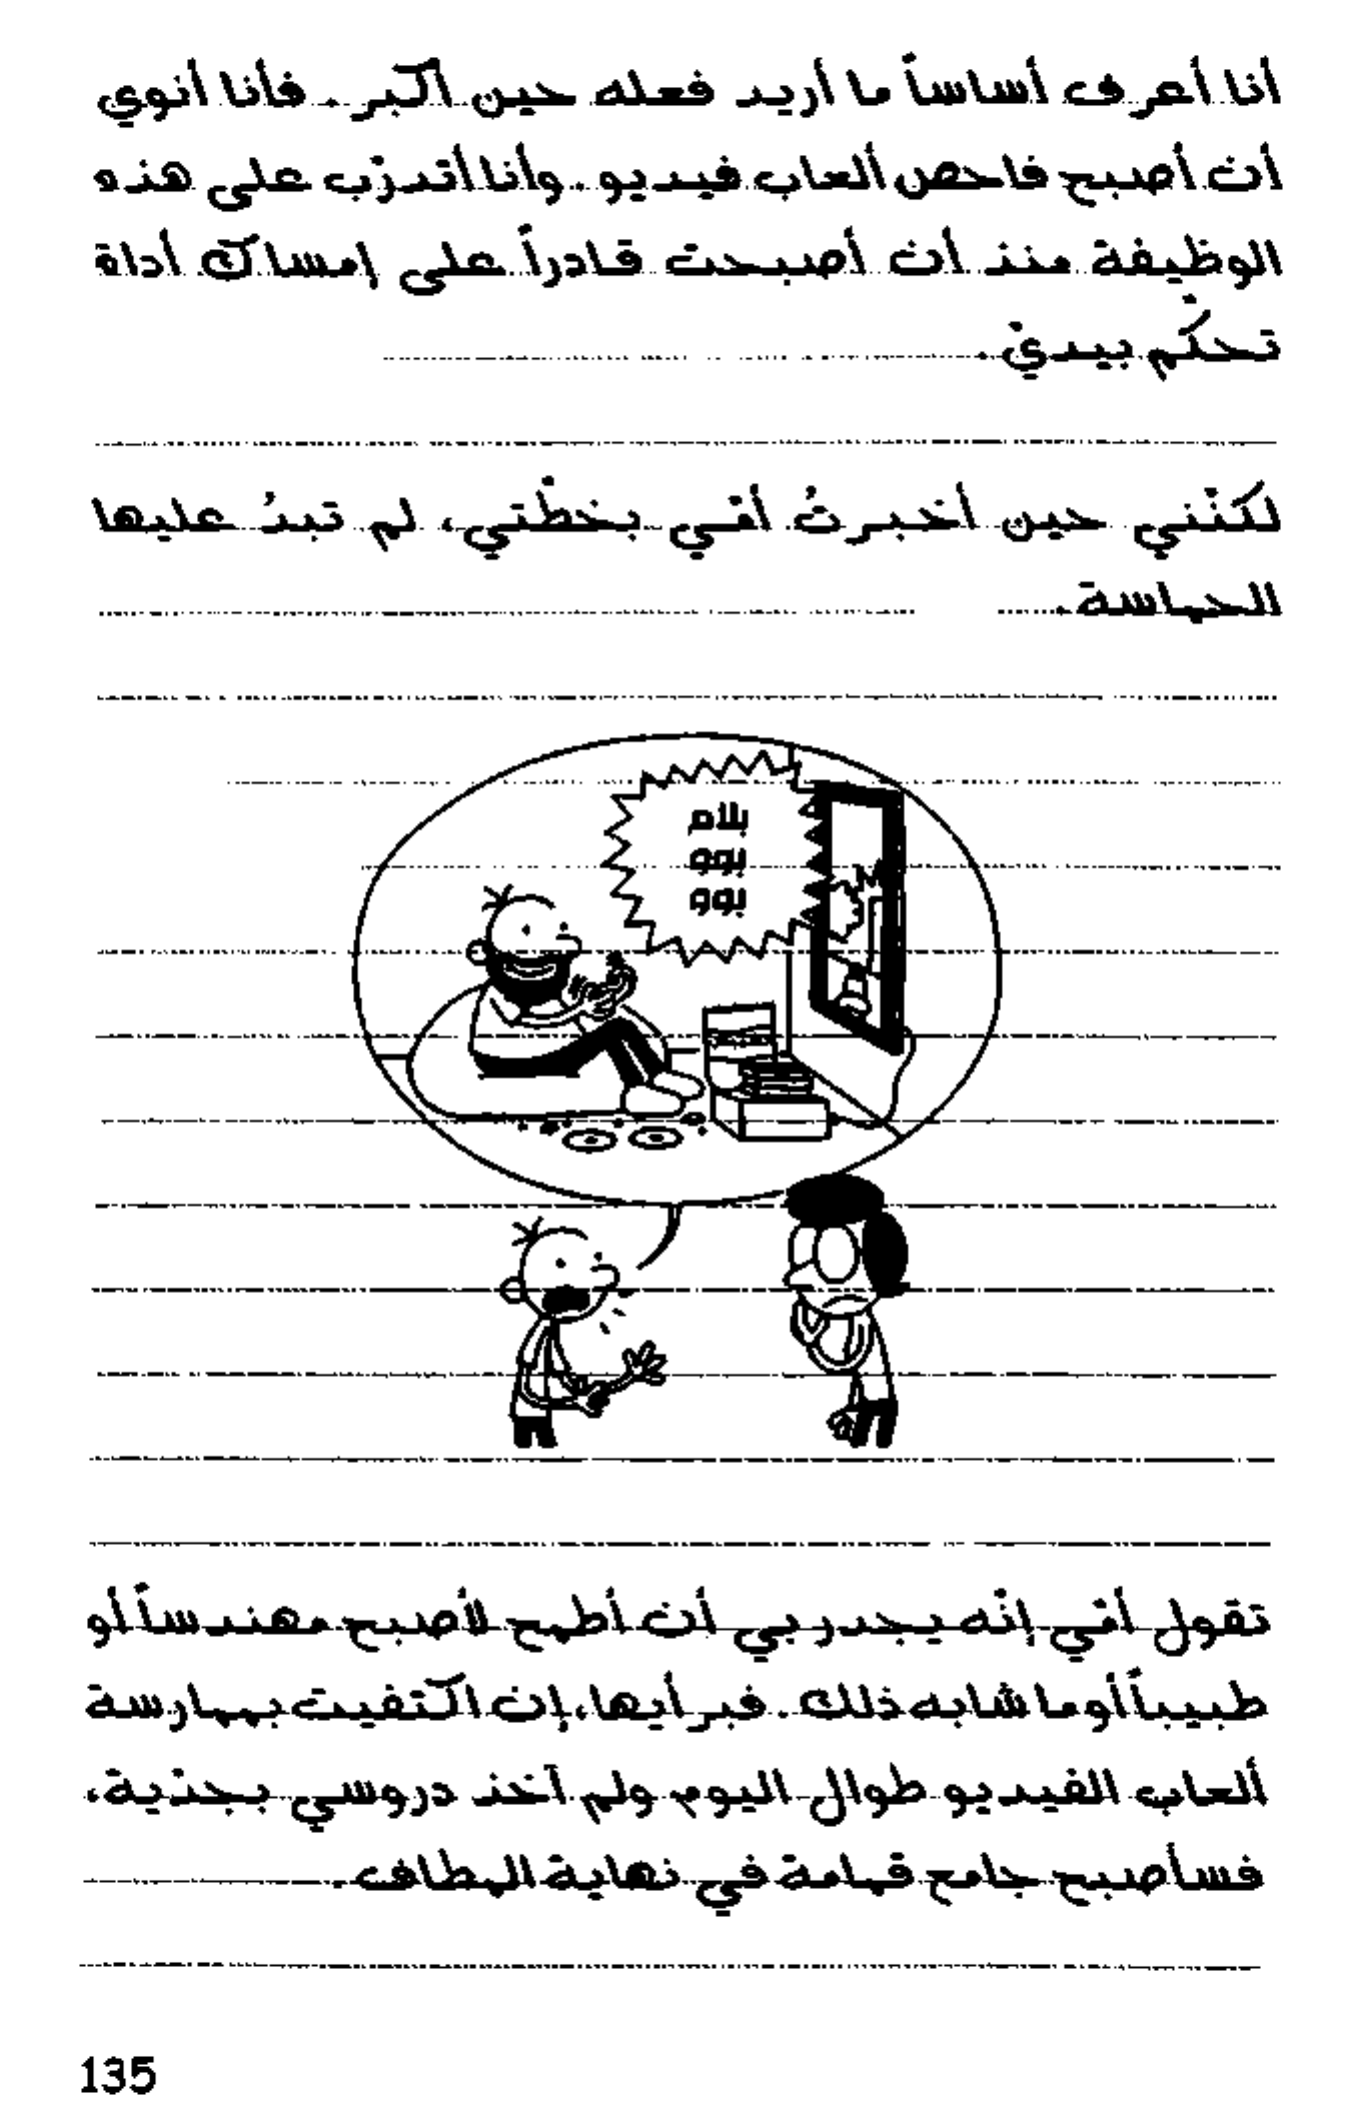 أنا أعرف أساساً ما أريد فعله حين أكبر. فأنا أنوي
أن أصبح فاحص ألعاب فيديو. وأنا أتدرّب على هذه
الوظيفة منذ أن أصبحت قادراً على إمساك أداة
تحكّم بيديّ.
لكنّني حين أخبرتُ أمّي بخطّتي، لم تبدُ عليها
الحماسة.
بلام
بوو
بوو
تقول أمّي إنّه يجدر بي أن أطمح لأصبح مهندساً أو
طبيباً أو ما شابه ذلك. فبرأيها، إن اكتفيت بممارسة
ألعاب الفيديو طوال اليوم ولم آخذ دروسي بجدّية،
فسأصبح جامع قمامة في نهاية المطاف.
135